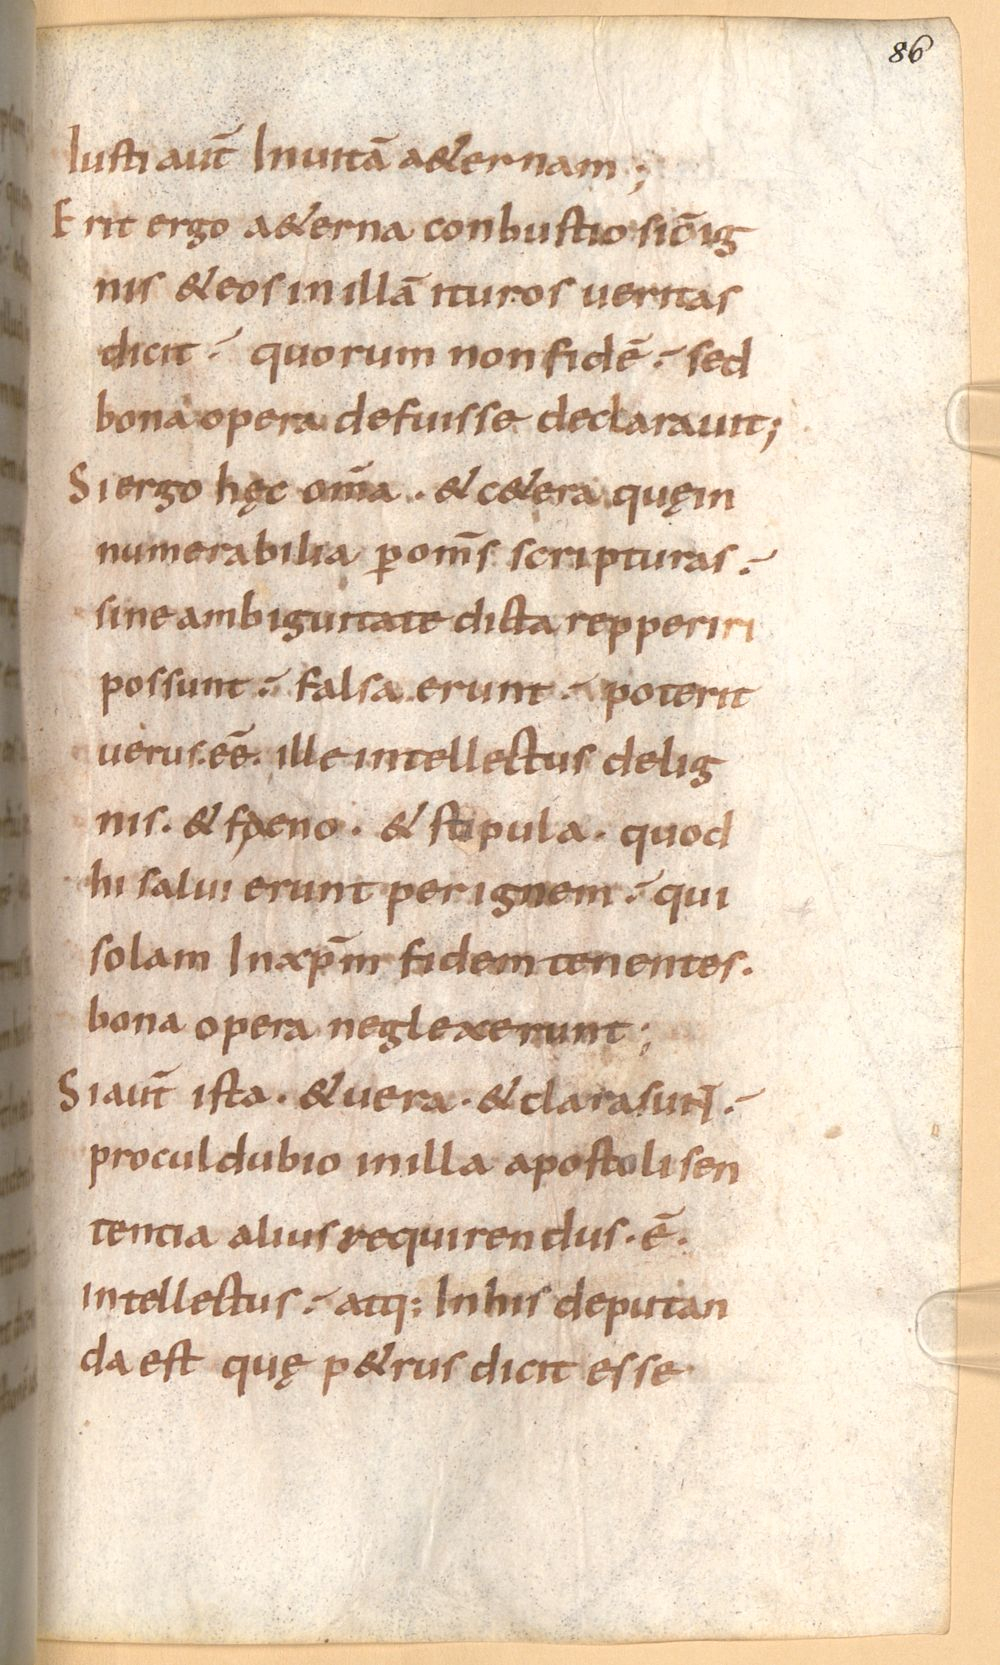 86
Iusti aut̄ In uitā a&ernam;
Erit ergo a&erna conbustio sic̄ ig
nis & eos in illā ituros ueritas
dicit · quorum non fidē · sed
bona opera defuisse declarauit;
Si ergo hęc om̄a · & c&era quę in
numerabilia ꝑ om̄s scripturas ·
sine ambiguitate dicta repperiri
possunt · falsa erunt · poterit
uerus · eē · ille intellectus de lig
nis · & faeno · & stipula · quod
hi salui erunt per ignem · qui
solam In xp̄m fidem tenentes ·
bona opera neglexerunt;
Si aut̄ ista · & uera · & clara sun̄t ·
procul dubio in illa apostoli sen
tencia alius requirendus · ē ·
intellectus · atq: In his deputan
da est quę p&rus dicit esse